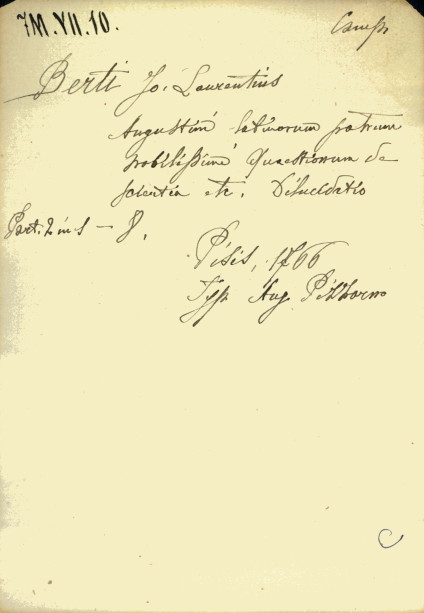 7M.VII.10.
Camp
Berti Jo. Laurentius
Augustini latinorum patrum
nobilissimi Quaestionum de
scientia etc. Dilucidatio
Part. 2 in 1 – 8.
Pisis, 1766
Typ Aug Pizzorno
C